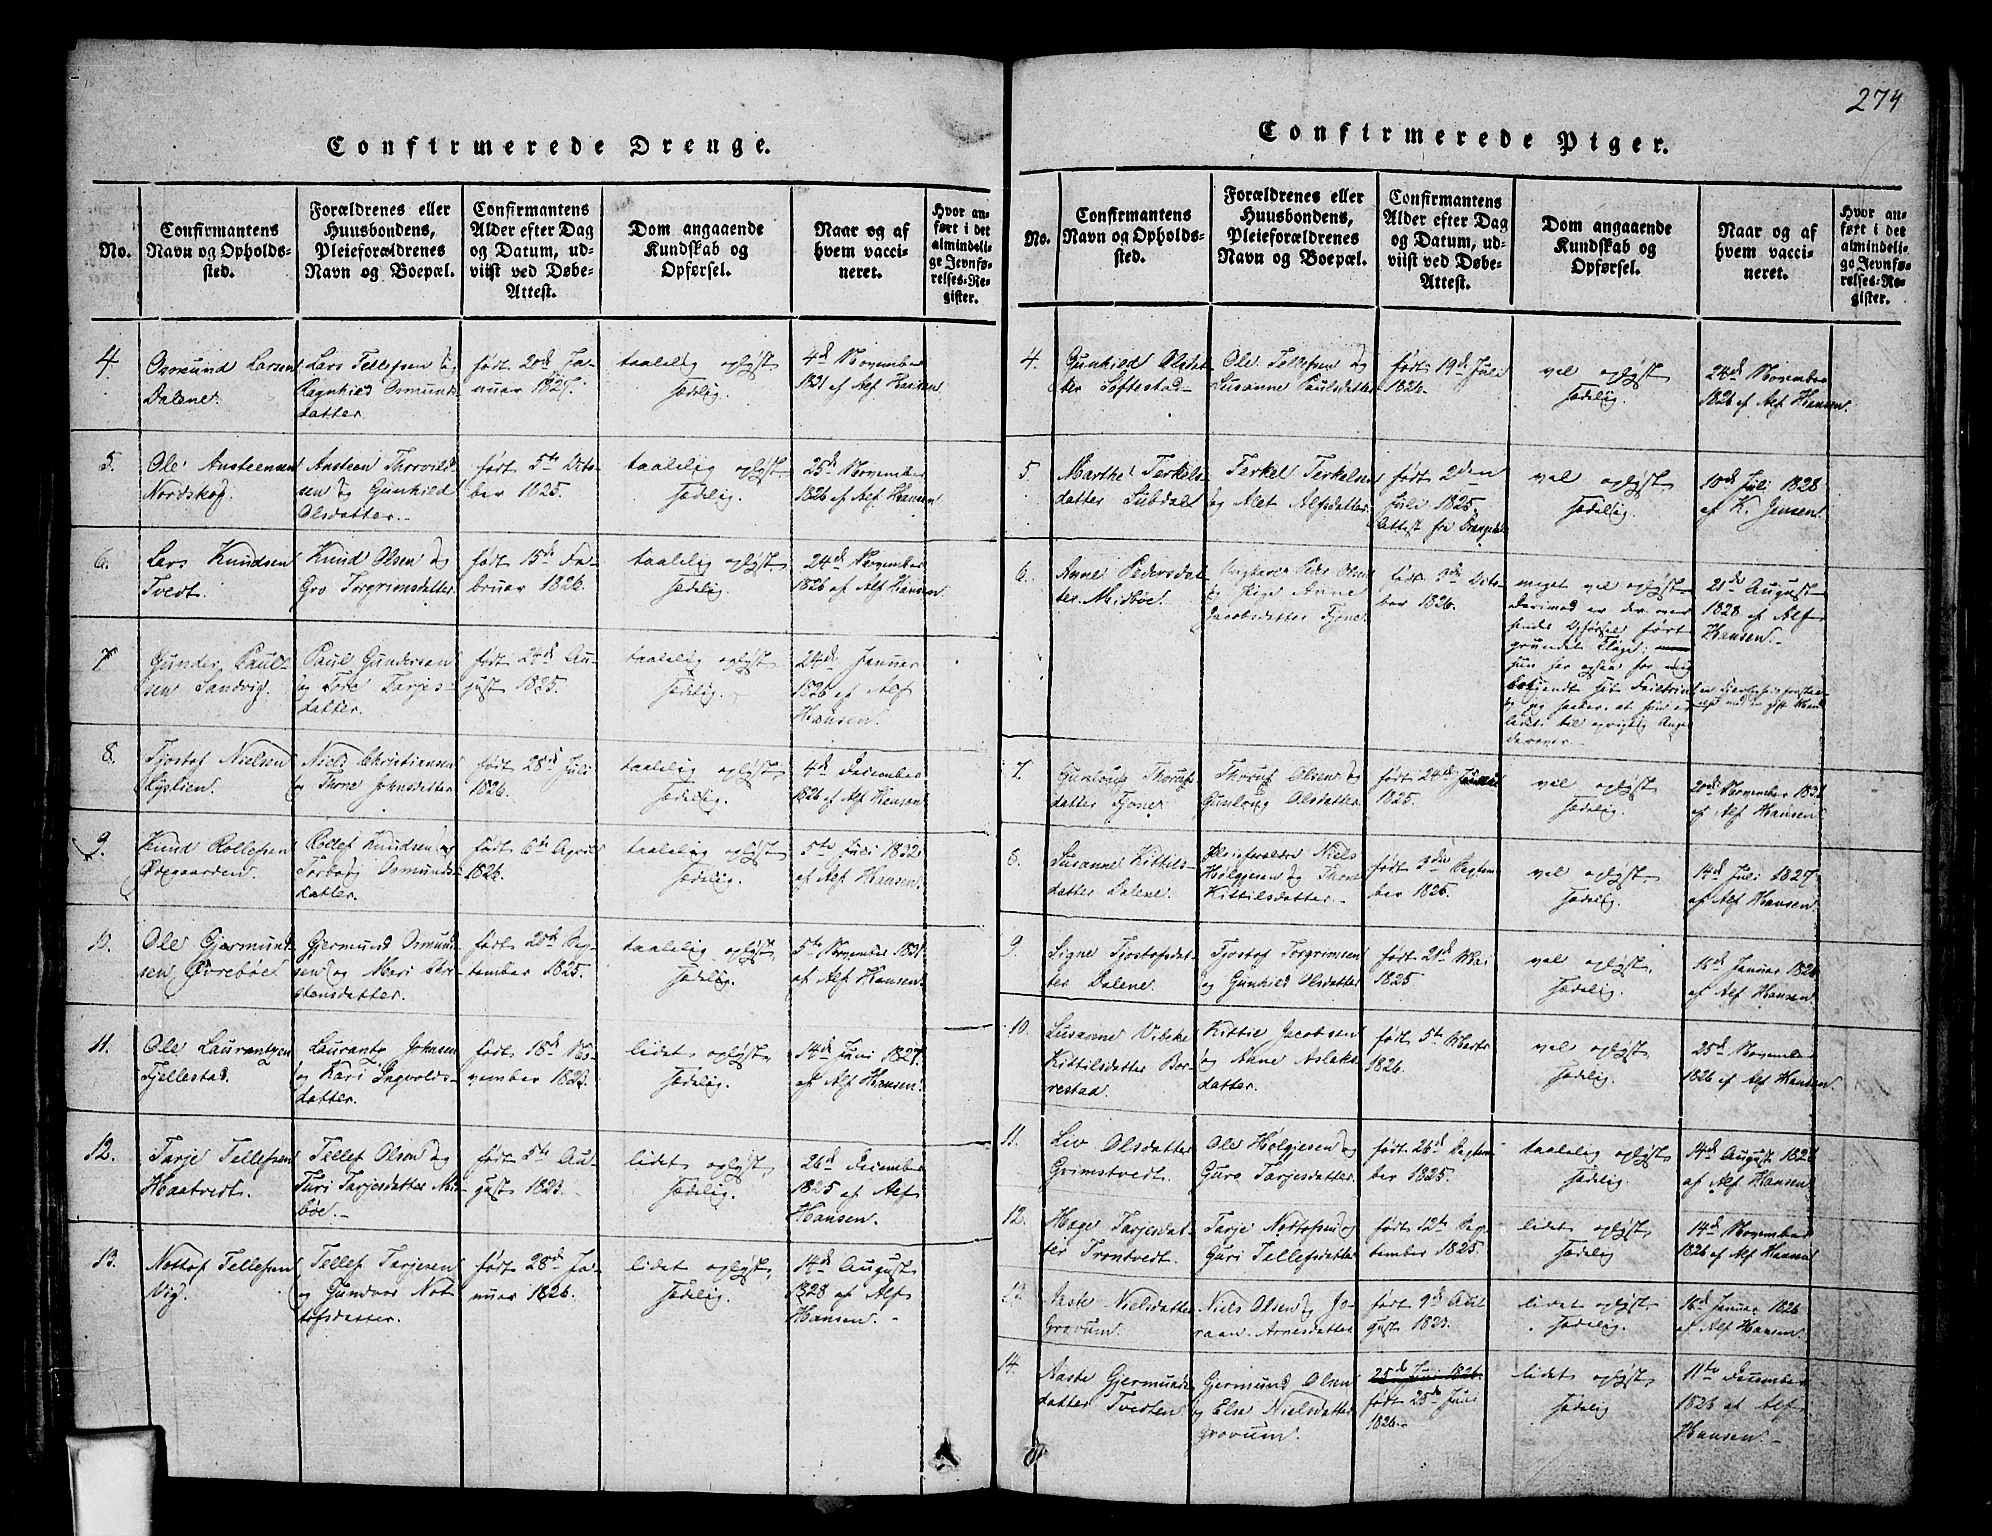 274
Confirmerede Drenge.
No.
Confirmantens
Navn og Opholds-
sted.
Forældrenes eller
Huusbondens,
Pleieforældrenes
Navn og Boepæl.
Confirmantens
Alder efter Dag
og Datum, ud-
viist ved Døbe-
Attest.
Dom angaaende
Kundskab og
Opførsel.
Naar og af
hvem vacci-
neret.
Hvor an-
ført i det
almindeli-
ge Jevnfø-
relses-Re-
gister.
4.
Osmund Larsen
Dalene.
Lars Tellefsen og
Ragnhild Osmunds
datter.
født 20de Ja-
nuar 1827.
taalelig oplyst
sædelig.
4de November
1831 af Alf Hansen
5.
Ole Ansteensen
Nordskog.
Ansteen Thorvild-
sen og Gunhild
Olsdatter.-
født 5te Octo-
ber 1825.
taalelig oplyst
sædelig.
25de November
1826 af Alf Hansen
6.
Lars Knudsen
Tvedt.
Knud Olsen og
Gro Torgrimsdatter
født 15de Fe-
bruar 1826.
taalelig oplyst,
sædelig.
24de November
1826 af Alf Hansen
7
Gunder Paul-
sen Sandvig.
Paul Gundersen
og Tore Tarjes-
datter.
født 24de Au-
gust 1825.
taalelig oplyst
sædelig.
24de Januar
1826 af Alf
Hansen.
8.
Tjostof Nielsen
Niels Christiansen
og Thone Johnsdatter
født 28de Juli
1826.
taalelig oplyst
sædelig.
4de December
1826 af Alf Hansen
9.
Knud Rollefsen
Ødegaarden.
Rollef Knudsen og
Torborg Osmunds
datter.
født 6te April
1826.
taalelig oplyst
sædelig.
5te Juli 1832
af Alf Hansen
10.
Ole Gjermund-
sen Øvrebøe.
Gjermund Osmund
sen og Mari
stensdatter.
født 20de Sep-
tember 1825.
taalelig oplyst
sædelig.
5te November 1831
af Alf Hansen.
11.
Ole Laurantzen
Fjellestad.
Laurantz Johnsen
og Kari Ingvolds-
datter.
født 18de No-
vember 1823.
lidet oplyst,
sædelig.
14de Juni 1827.
af Alf Hansen.
12.
Tarje Tellefsen
Haatvedt.
Tellef Olsen og
Turi Tarjesdatter Mid
bøe.-
født 5te Au-
gust 1823.
lidet oplyst,
sædelig.
26de December
1825 af Alf
Hansen.
13.
Nottof Tellefsen
Vig.
Tellef Tarjesen
og Gundvor Not
tofsdatter.
født 28de Ja-
nuar 1826.
lidet oplyst,
sædelig.
14de August
1828 af Alf
Hansen. -
Confirmerede Piger.
No.
Confirmantens
Navn og Opholds-
sted.
Forældrenes eller
Huusbondens,
Pleieforældrenes
Navn og Boepæl.
Confirmantens
Alder efter Dag
og Datum, ud-
viist ved Døbe-
Attest.
Dom angaaende
Kundskab og
Opførsel.
Naar og af
hvem vacci-
neret.
Hvor an-
ført i det
almindeli-
ge Jevnfø-
relses-Re-
gister.
4.
Gunhild Olsdat
ter Søftestad-
Ole Tellefsen og
Susanne Paulsdatter
født 19de Juli
1826.
vel oplyst
sædelig.
24de November
1826 af Alf Hansen.
5.
Marthe Terkels-
datter Subdal.
Terkel Terkelsen
og Alet Alfsdatter.
født 2den
Juli 1825.
Attest fra Drangedal
vel oplyst,
sædelig.
10de Juli 1828
af K. Jensen.
6.
Anne Pedersdat-
ter Midbøe.
Ungkarl Peder Olsen
og Pige Anne
Jacobsdatter Tjønne
født 3die Octo-
ber 1826.
meget vel oplyst
derimod er der over
hendes Opførsel ført
grundet Klage;
hun har ogsaa for mig
21de August
1828 af Alf
Hansen.
7.
Gunloug Thorufs
datter Tjønne
Thoruf Olsen og
Gunloug Olsdatter
født 24de Januar
1825.
vel oplyst
sædelig.
20de November 1831
af Alf Hansen
8.
Susanne Kittils-
datter Dalene.
Pleieforældre Niels
Holgjesen og Thone
Kittilsdatter.-
født 3die Septem
ber 1825.
vel oplyst,
sædelig.
14de Juli 1827
af Alf Hansen.
9.
Signe Tjostofsdat-
ter Dalene.
Tjostof Torgrimsen
og Gunhild Olsdatter
født 21de Mai
1825
vel oplyst,
sædelig.
16de Januar 1826
af Alf Hansen
10.
Susanne Vibeke
Kittilsdatter Bor-
restad.
Kittil Jacobsen
og Anne Aslaks
datter.
født 5te Marts
1826.
vel oplyst,
sædelig.
25de November
1826 af Alf Hansen.
11.
Liv Olsdatter
Grimstvedt.
Ole Holgjesen og
Guro Tarjesdatter.
født 26de Septem
ber 1825.
taalelig oplyst
sædelig.
14de August 1828
af Alf Hansen
12.
Hæge Tarjesdat-
ter Trontvedt.
Tarje Nottofsen og
Guri Tellefsdatter
født 12te Sep-
tember 1825.
lidet oplyst,
sædelig
14de November
1826 af Alf Hansen
13.
Aaste Nielsdatter
Gravum.
Niels Olsen og Jo-
raan Arnesdatter
født 9de Au-
gust 1823.
lidet oplyst,
sædelig.
16de Januar 1826
af Alf Hansen.
14.
Aaste Gjermunds
datter Tvedten.
Gjermund Olsen
og Else Nielsdatter
Gravum.
25de Juni 1826.
født 25de Juni
1826.-
lidet oplyst,
sædelig
11te December
1826 af Alf
Hansen.-